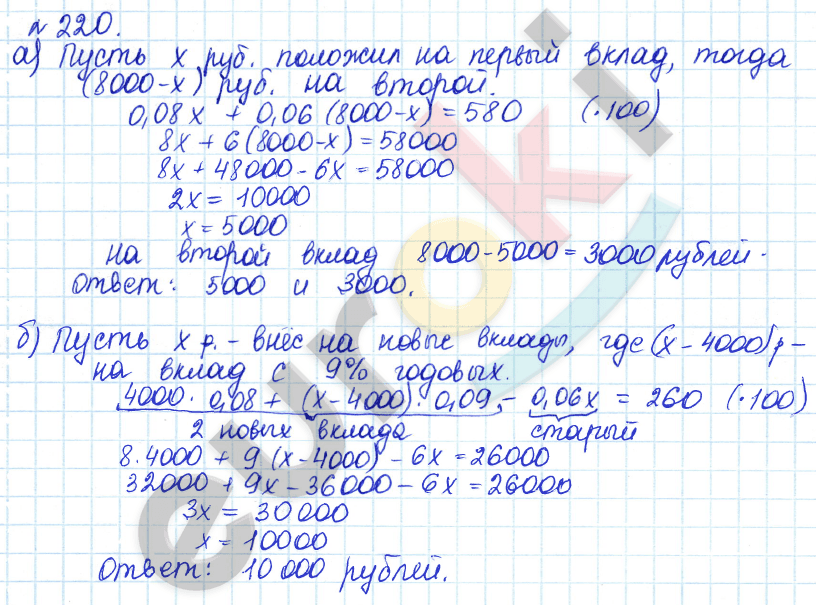 № 220.
а) Пусть х руб. положил на первый вклад, тогда
(8000-х) руб. на второй.
0,08х + 0,06 (8000-х) = 580 (·100)
8х + 6 (8000-х) = 58000
8х + 48000 - 6х = 58000
2х = 10000
х = 5000
На второй вклад 8000-5000 = 3000 рублей.
Ответ: 5000 и 3000.
б) Пусть х р. - внёс на новые вклады, где (х - 4000) р -
на вклад с 9% годовых.
4000 · 0,08 + (х - 4000) · 0,09 - 0,06х = 260 (·100)
2 новых вклада старый
8·4000 + 9 (х-4000) - 6х = 26000
32000 + 9х - 36000 - 6х = 26000
3х = 30000
х = 10000
Ответ: 10 000 рублей.
euroki